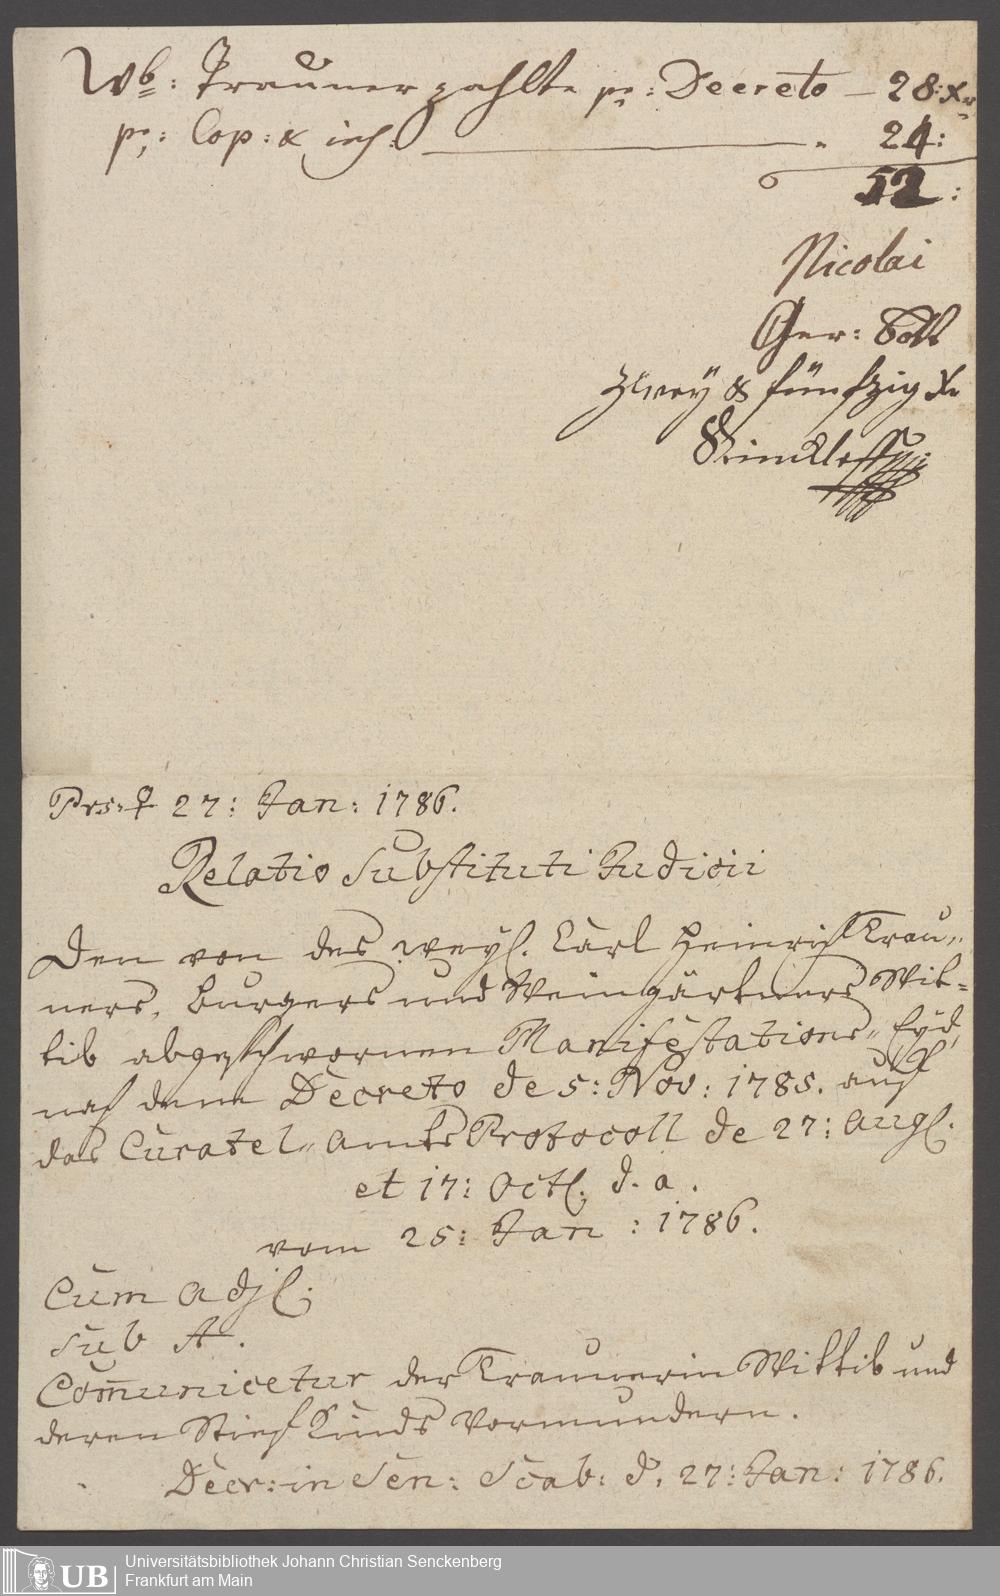 Wb: Trauner zahlte pr: Decreto — 28: Xr
pr: Cop: & ins: — 24:
52:
Nicolai
Ger: Bott
Zwey & fünfzig Xr
Prs: ♀ 27: Jan: 1786.
Relatio Substituti Judicii
Den von des weyl. Carl Heinrich Trau„
ners, burgers und Weingärtners Wit=
tib abgeschwornen Manifestations„Eyd,
nach dem Decreto de 5: Nov: 1785. auf
das Curatel„Amts Protocoll de 27: Augl.
et 17: Octl. d. a.
vom 25: Jan: 1786.
Cum Adjl:
sub A.
Com̄unicetur der Traunerin Wittib und
deren Stief Kinds Vormundern.
Decr: in Sen: Scab: d. 27: Jan: 1786.
UB
Universitätsbibliothek Johann Christian Senckenberg
Frankfurt am Main